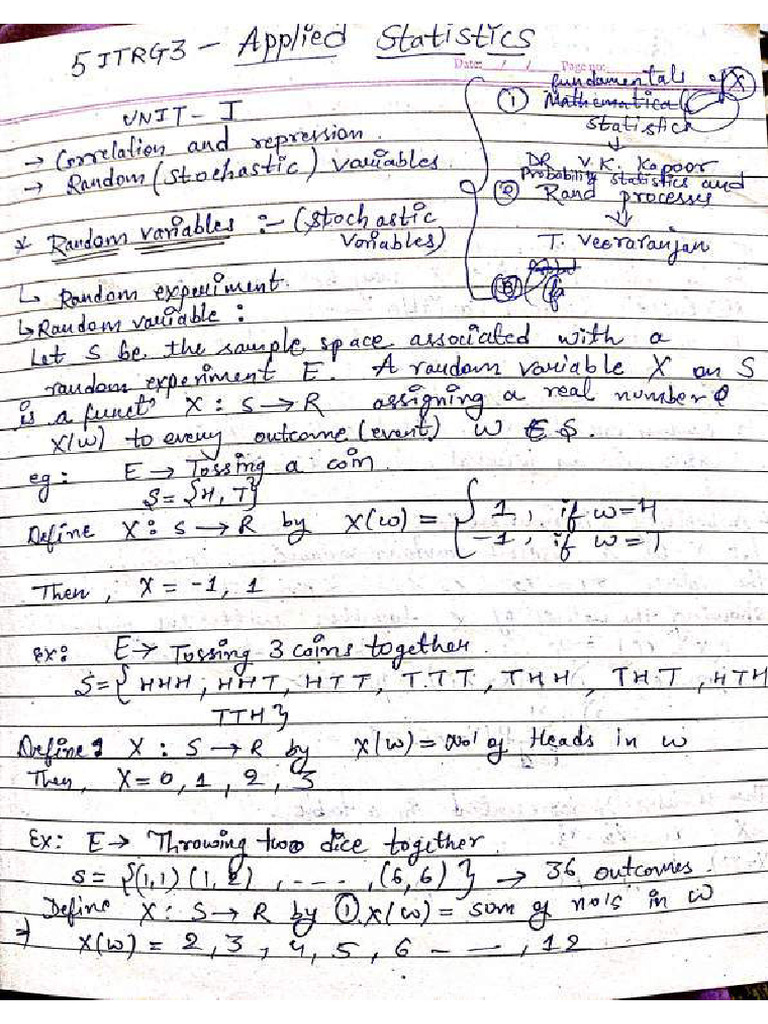 5 ITRG3 - Applied Statistics
Date: / / Page no:
UNIT - I
→ Correlation and repression.
→ Random (stochastic) variables.
* Random variables :- (stochastic
variables)
fundamental of X
① Mathematical
statistics
↓
DR V.K. Kapoor
② Probability statistics and
Rand processes
↓
T. Veeraranjan
③
↳ Random experiment.
↳ Random variable :
Let S be the sample space associated with a
random experiment E. A random variable X on S
is a funct' X : S → R assigning a real number
X(w) to every outcome (event) w ∈ S.
eg: E → Tossing a coin.
S = {H, T}
Define X : S → R by X(w) = { 1, if w=H
-1, if w=T
Then, X = -1, 1
Ex: E → Tossing 3 coins together.
S = { HHH, HHT, HTT, TTT, THH, THT, HTH
TTH}
Define X : S → R by X(w) = no' of Heads in w
Then, X = 0, 1, 2, 3
Ex: E → Throwing two dice together.
S = {(1,1) (1,2), ...., (6,6)} → 36 outcomes.
Define X : S → R by ① X(w) = sum of no's in w
⇒ X(w) = 2, 3, 4, 5, 6 - --, 12